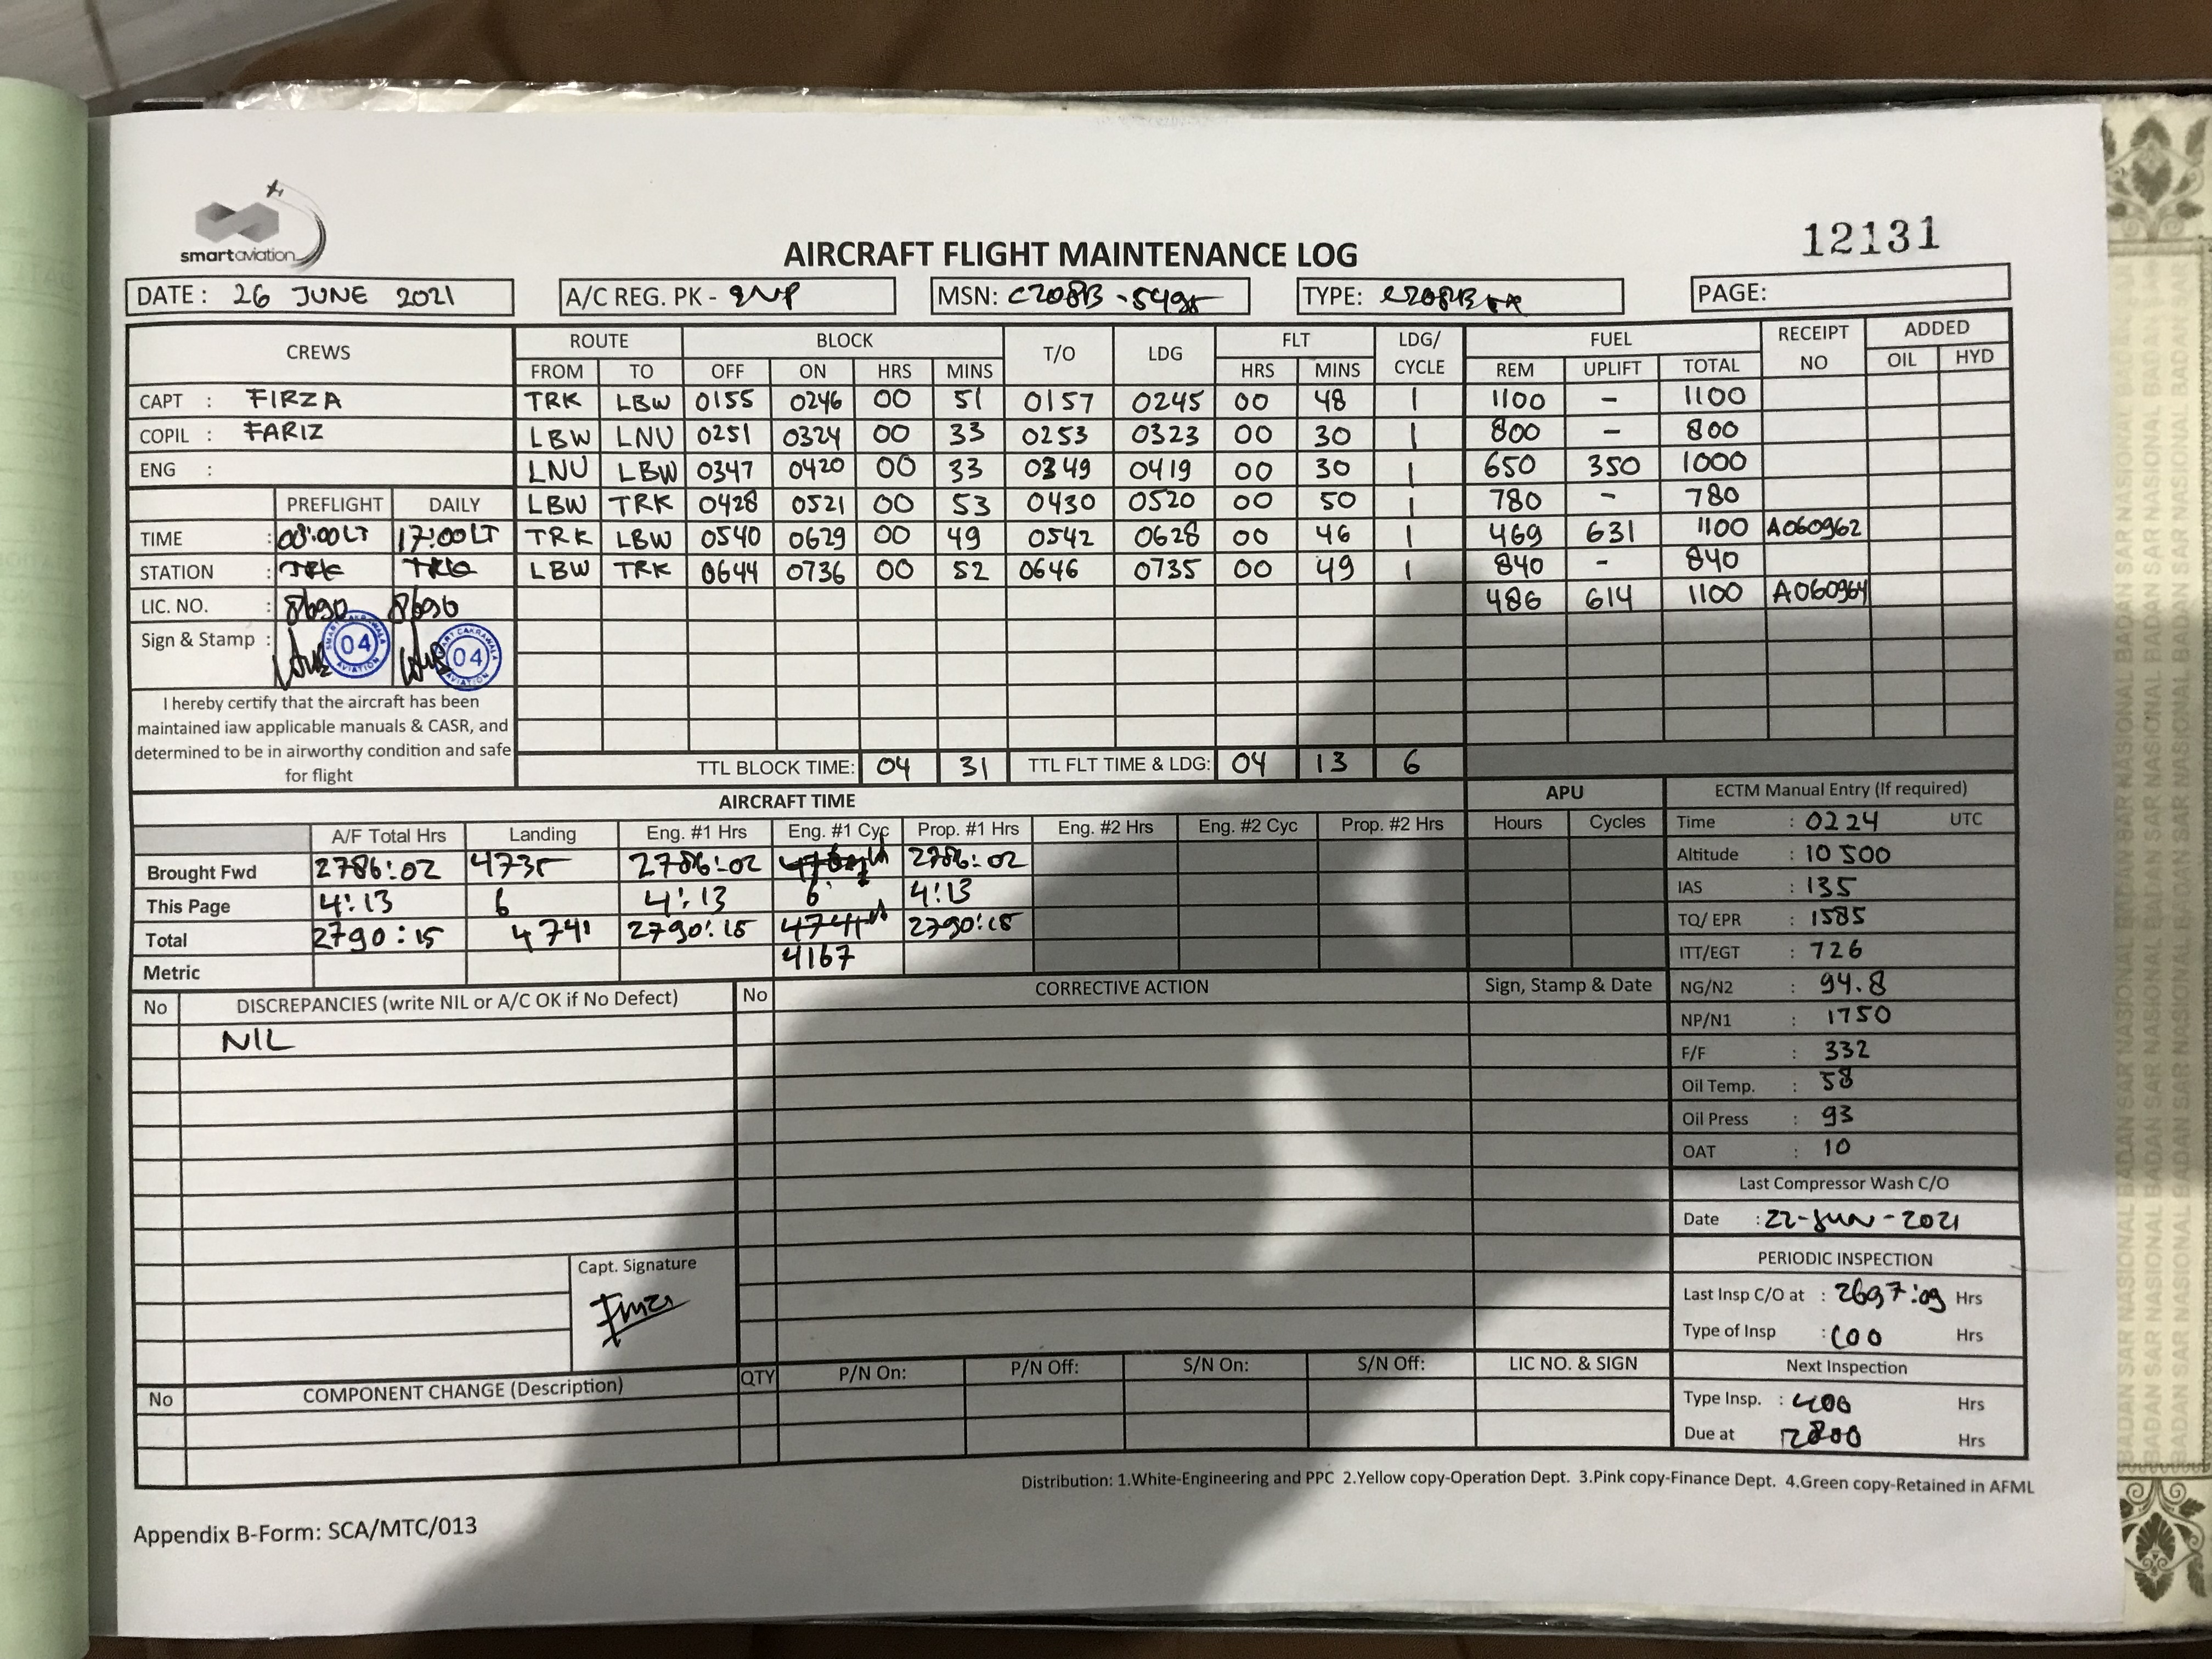 smartaviation
12131
AIRCRAFT FLIGHT MAINTENANCE LOG
DATE : 26 JUNE 2021 A/C REG. PK - SNP MSN: C208B - 5495 TYPE: C208B EX PAGE:
CREWS ROUTE BLOCK T/O LDG FLT LDG/ CYCLE FUEL RECEIPT NO ADDED
FROM TO OFF ON HRS MINS HRS MINS REM UPLIFT TOTAL OIL HYD
CAPT : FIRZA TRK LBW 0155 0246 00 51 0157 0245 00 48 1 1100 - 1100
COPIL : FARIZ LBW LNU 0251 0324 00 33 0253 0323 00 30 1 800 - 800
ENG : LNU LBW 0347 0420 00 33 0349 0419 00 30 1 650 350 1000
PREFLIGHT DAILY LBW TRK 0428 0521 00 53 0430 0520 00 50 1 780 - 780
TIME : 08:00LT 17:00LT TRK LBW 0540 0629 00 49 0542 0628 00 46 1 469 631 1100 A060962
STATION : TRK TRK LBW TRK 0644 0736 00 52 0646 0735 00 49 1 840 - 840
LIC. NO. : 8690 8690 486 614 1100 A060964
Sign & Stamp : 04 04
I hereby certify that the aircraft has been
maintained iaw applicable manuals & CASR, and
determined to be in airworthy condition and safe
for flight
TTL BLOCK TIME: 04 31 TTL FLT TIME & LDG: 04 13 6
AIRCRAFT TIME APU ECTM Manual Entry (If required)
A/F Total Hrs Landing Eng. #1 Hrs Eng. #1 Cyc Prop. #1 Hrs Eng. #2 Hrs Eng. #2 Cyc Prop. #2 Hrs Hours Cycles Time : 0224 UTC
Brought Fwd 2786:02 4735 2786:02 2786:02 Altitude : 10 500
This Page 4:13 6 4:13 6 4:13 IAS : 135
Total 2790:15 4741 2790:15 4741 2790:15 TQ/ EPR : 1585
4167 ITT/EGT : 726
Metric
No DISCREPANCIES (write NIL or A/C OK if No Defect) No CORRECTIVE ACTION Sign, Stamp & Date NG/N2 : 94.8
NIL NP/N1 : 1750
F/F : 332
Oil Temp. : 58
Oil Press : 93
OAT : 10
Last Compressor Wash C/O
Date : 22-Jun-2021
Capt. Signature
PERIODIC INSPECTION
Last Insp C/O at : 2697:09 Hrs
Type of Insp : 100 Hrs
Next Inspection
No COMPONENT CHANGE (Description) QTY P/N On: P/N Off: S/N On: S/N Off: LIC NO. & SIGN
Type Insp. : 400 Hrs
Due at 2800 Hrs
Distribution: 1.White-Engineering and PPC 2.Yellow copy-Operation Dept. 3.Pink copy-Finance Dept. 4.Green copy-Retained in AFML
Appendix B-Form: SCA/MTC/013
BADAN SAR NASIONAL